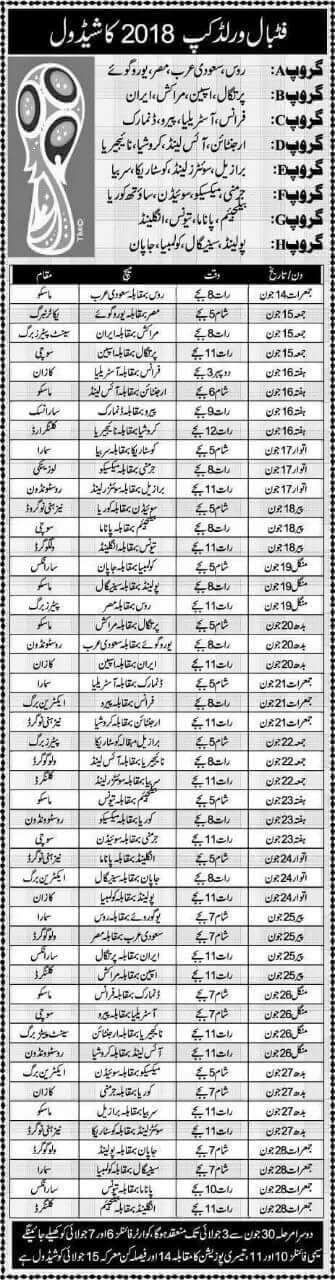 فٹبال ورلڈ کپ 2018 کا شیڈول
گروپ A: روس، سعودی عرب، مصر، یوروگوئے
گروپ B: پرتگال، اسپین، مراکش، ایران
گروپ C: فرانس، آسٹریلیا، پیرو، ڈنمارک
گروپ D: ارجنٹائن، آئس لینڈ، کروشیا، نائیجیریا
گروپ E: برازیل، سوئٹزرلینڈ، کوسٹاریکا، سربیا
گروپ F: جرمنی، میکسیکو، سوئیڈن، ساؤتھ کوریا
گروپ G: بیلجیئم، پاناما، تیونس، انگلینڈ
گروپ H: پولینڈ، سینیگال، کولمبیا، جاپان
TM©
دن/تاریخ وقت میچ مقام
جمعرات 14 جون رات 8 بجے روس بمقابلہ سعودی عرب ماسکو
جمعہ 15 جون شام 5 بجے مصر بمقابلہ یوروگوئے یکاترنبرگ
جمعہ 15 جون رات 8 بجے مراکش بمقابلہ ایران سینٹ پیٹرز برگ
جمعہ 15 جون رات 11 بجے پرتگال بمقابلہ اسپین سوچی
ہفتہ 16 جون دوپہر 3 بجے فرانس بمقابلہ آسٹریلیا کازان
ہفتہ 16 جون شام 6 بجے ارجنٹائن بمقابلہ آئس لینڈ ماسکو
ہفتہ 16 جون رات 9 بجے پیرو بمقابلہ ڈنمارک سارانسک
ہفتہ 16 جون رات 12 بجے کروشیا بمقابلہ نائیجیریا کلننگراڈ
اتوار 17 جون شام 5 بجے کوسٹاریکا بمقابلہ سربیا سمارا
اتوار 17 جون رات 8 بجے جرمنی بمقابلہ میکسیکو لوزنیکی
اتوار 17 جون رات 11 بجے برازیل بمقابلہ سوئٹزرلینڈ روسٹوندون
پیر 18 جون شام 5 بجے سوئیڈن بمقابلہ کوریا نیزہنی نوگروڈ
پیر 18 جون رات 8 بجے بیلجیئم بمقابلہ پاناما سوچی
پیر 18 جون رات 11 بجے تیونس بمقابلہ انگلینڈ ولگوگرڈ
منگل 19 جون شام 5 بجے کولمبیا بمقابلہ جاپان سارانکس
منگل 19 جون رات 8 بجے پولینڈ بمقابلہ سینیگال ماسکو
منگل 19 جون رات 11 بجے روس بمقابلہ مصر پیٹرز برگ
بدھ 20 جون شام 5 بجے پرتگال بمقابلہ مراکش ماسکو
بدھ 20 جون رات 8 بجے یوروگوئے بمقابلہ سعودی عرب روسٹوندون
بدھ 20 جون رات 11 بجے ایران بمقابلہ اسپین کازان
جمعرات 21 جون شام 5 بجے ڈنمارک بمقابلہ آسٹریلیا سمارا
جمعرات 21 جون رات 8 بجے فرانس بمقابلہ پیرو ایکٹرین برگ
جمعرات 21 جون رات 11 بجے ارجنٹائن بمقابلہ کروشیا نیزہنی نوگرڈ
جمعہ 22 جون شام 5 بجے برازیل بمقابلہ کوسٹاریکا پیٹرز برگ
جمعہ 22 جون رات 8 بجے نائیجیریا بمقابلہ آئس لینڈ ولوگوگرڈ
جمعہ 22 جون رات 11 بجے سربیا بمقابلہ سوئٹزرلینڈ کلنگرڈ
ہفتہ 23 جون شام 5 بجے بیلجیئم بمقابلہ تیونس ماسکو
ہفتہ 23 جون رات 8 بجے کوریا بمقابلہ میکسیکو روسٹوندون
ہفتہ 23 جون رات 11 بجے جرمنی بمقابلہ سوئیڈن سوچی
اتوار 24 جون شام 5 بجے انگلینڈ بمقابلہ پاناما نیزہنی نوگرڈ
اتوار 24 جون رات 8 بجے جاپان بمقابلہ سینیگال ایکٹرین برگ
اتوار 24 جون رات 11 بجے پولینڈ بمقابلہ کولمبیا کازان
پیر 25 جون شام 7 بجے یوگوروئے بمقابلہ روس سمارا
پیر 25 جون شام 7 بجے سعودی عرب بمقابلہ مصر ولوگوگرڈ
پیر 25 جون رات 11 بجے ایران بمقابلہ پرتگال سارانکس
پیر 25 جون رات 11 بجے اسپین بمقابلہ مراکش کلنگرڈ
منگل 26 جون شام 7 بجے ڈنمارک بمقابلہ فرانس ماسکو
منگل 26 جون شام 7 بجے آسٹریلیا بمقابلہ پیرو سوچی
منگل 26 جون رات 11 بجے نائیجیریا بمقابلہ ارجنٹائن سینٹ پیٹرز برگ
منگل 26 جون رات 11 بجے آئس لینڈ بمقابلہ کروشیا روسٹوندون
بدھ 27 جون شام 7 بجے میکسیکو بمقابلہ سوئیڈن ایکٹرین برگ
بدھ 27 جون شام 7 بجے کوریا بمقابلہ جرمنی کازان
بدھ 27 جون رات 11 بجے سربیا بمقابلہ برازیل ماسکو
بدھ 27 جون رات 11 بجے سوئٹزرلینڈ بمقابلہ کوسٹاریکا نیزہنی نوگرڈ
جمعرات 28 جون شام 7 بجے جاپان بمقابلہ پولینڈ ولوگوگرڈ
جمعرات 28 جون شام 7 بجے سینیگال بمقابلہ کولمبیا سمارا
جمعرات 28 جون رات 10 بجے پاناما بمقابلہ تیونس سارانکس
جمعرات 28 جون رات 11 بجے انگلینڈ بمقابلہ بیلجیئم کلنگرڈ
دوسرا مرحلہ 30 جون سے 3 جولائی تک منعقد ہوگا، کوارٹر فائنلز 6 اور 7 جولائی کو کھیلے جائینگے
سیمی فائنلز 10 اور 11، تیسری پوزیشن کا مقابلہ 14 اور فیصلہ کن معرکہ 15 جولائی کو شیڈول ہے